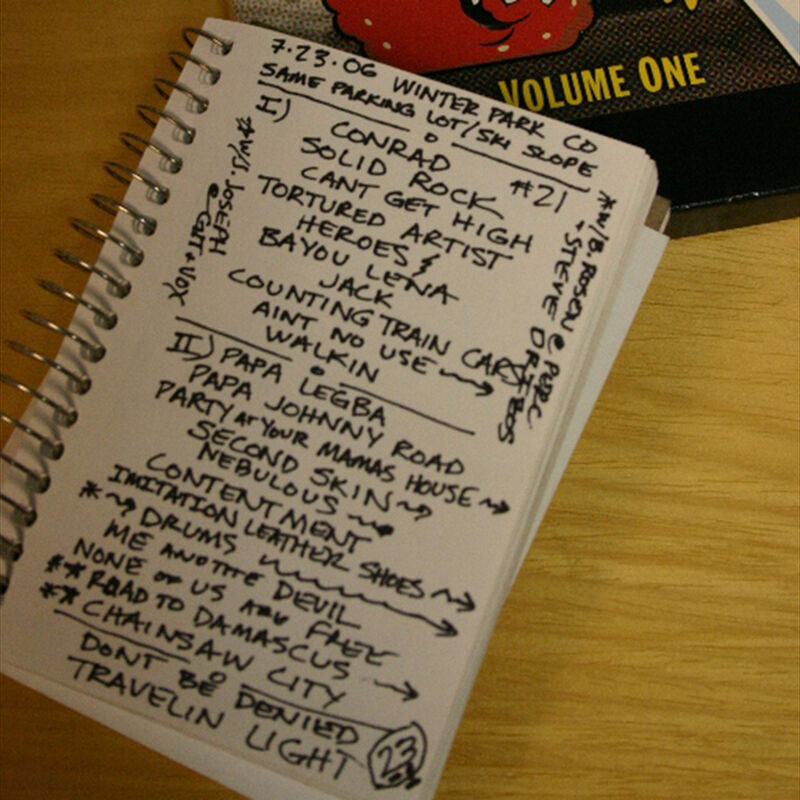 VOLUME ONE
7.23.06 WINTER PARK CO
SAME PARKING LOT/SKI SLOPE
I)
CONRAD
SOLID ROCK #21
CANT GET HIGH
TORTURED ARTIST
HEROES &
BAYOU LENA
JACK
COUNTING TRAIN CARS
AINT NO USE
WALKIN
II) PAPA LEGBA
PAPA JOHNNY ROAD
PARTY AT YOUR MAMAS HOUSE
SECOND SKIN
NEBULOUS
CONTENTMENT
IMITATION LEATHER SHOES
* DRUMS
ME AND THE DEVIL
NONE OF US ARE FREE
** ROAD TO DAMASCUS
** CHAINSAW CITY
DONT BE DENIED
TRAVELIN LIGHT
23
*W/J. JOSEPH
@ GUIT + VOX
*W/B. ROSEN @ PERC
+ STEVE